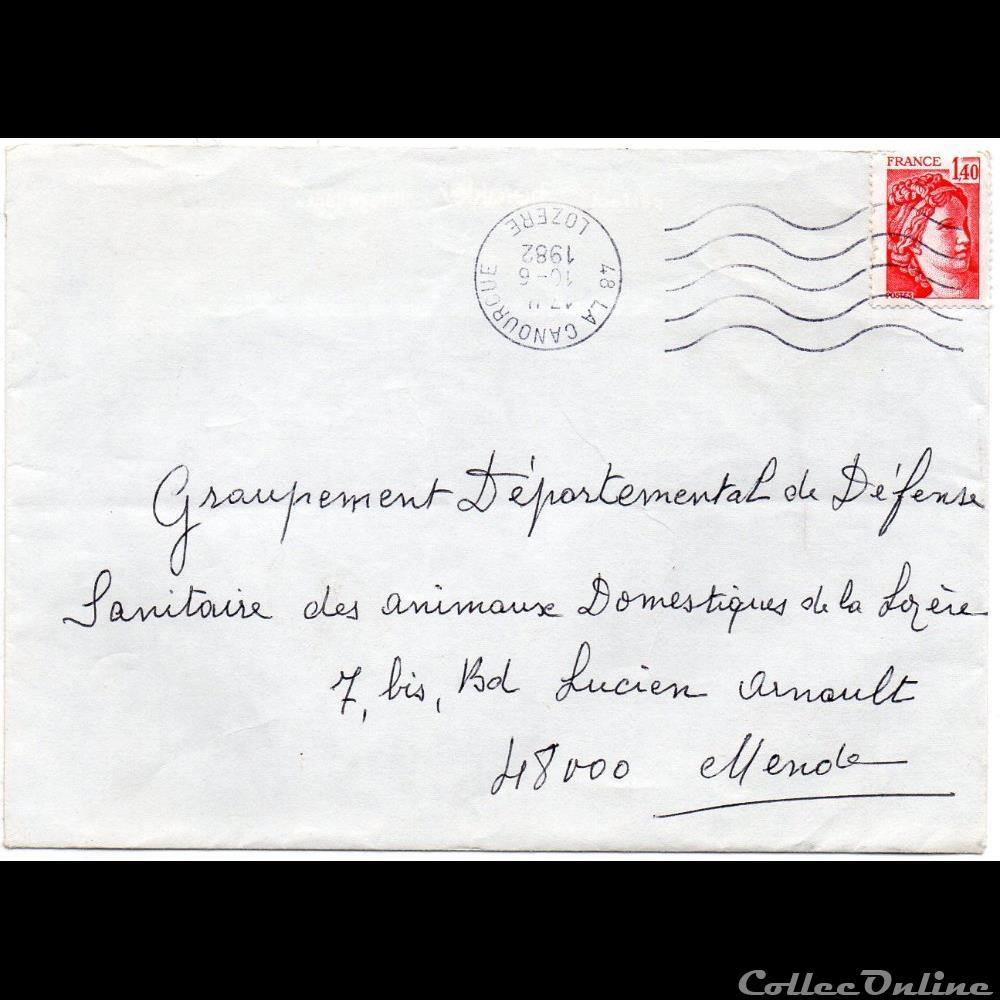 FRANCE 1,40
POSTES
48 LA CANOURGUE
17 H
10-6
1982
LOZERE
Groupement Départemental de Défense
Sanitaire des animaux Domestiques de la Lozère
7, bis, Bd Lucien Arnault
48000 Mende
CollecOnline